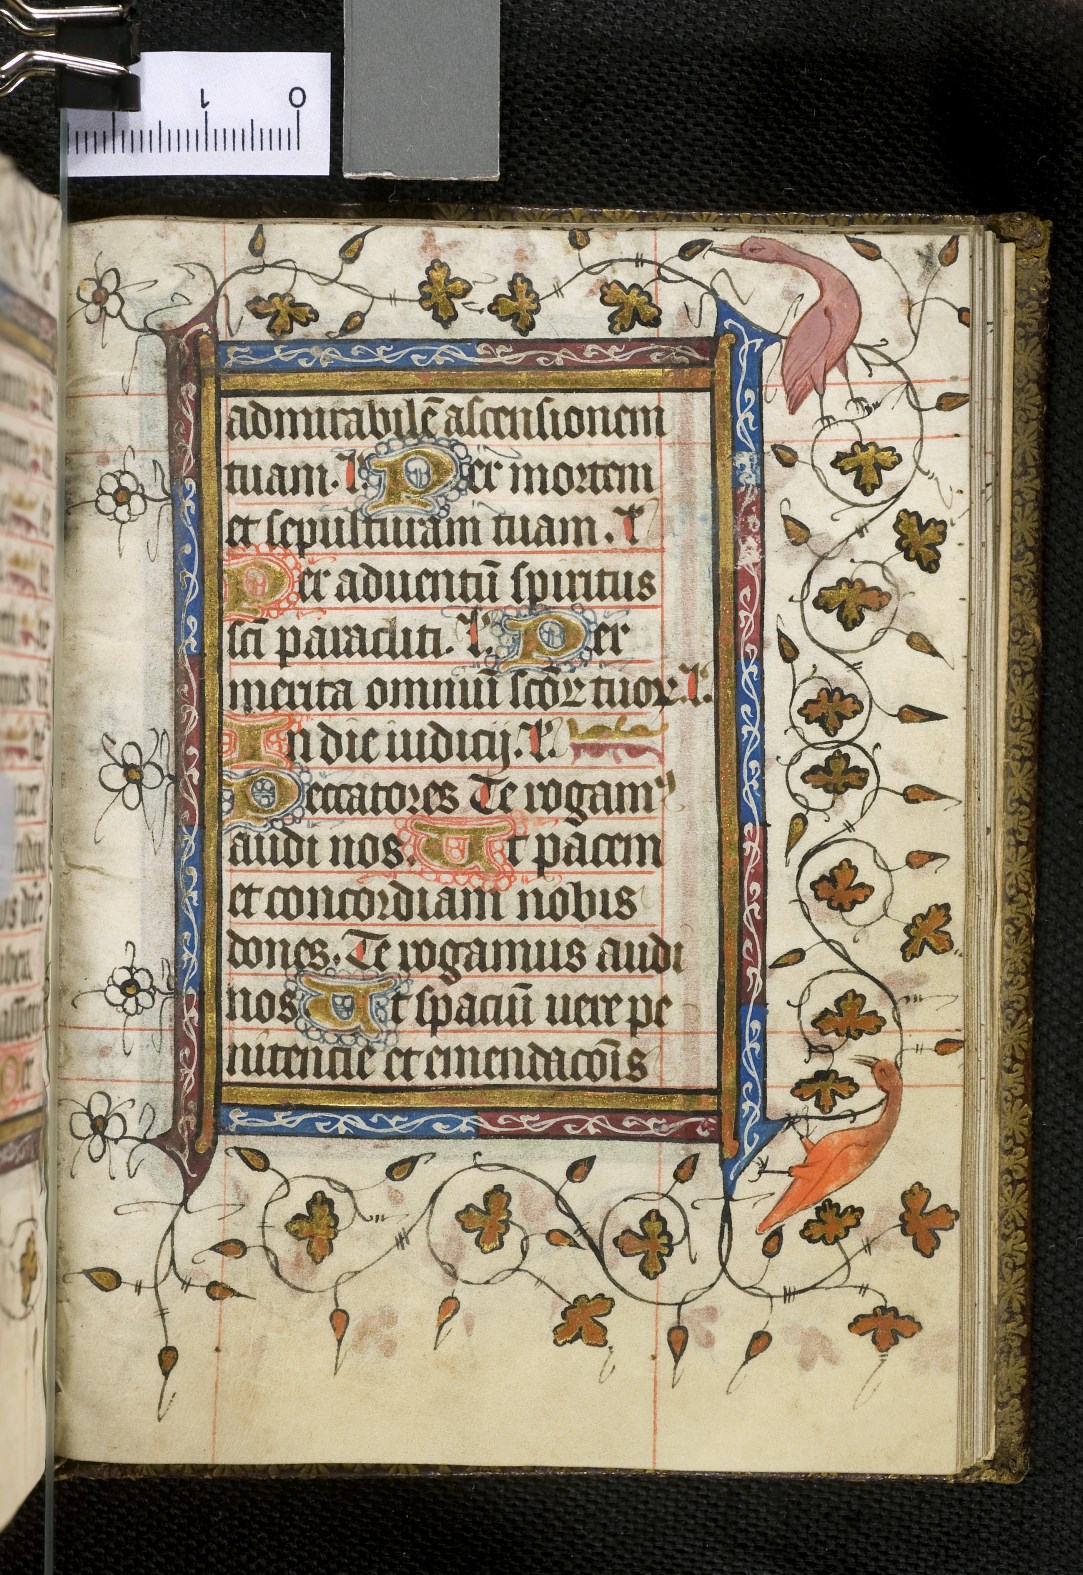 1 0
admirabilē ascensionem
tuam. L. Per mortem
et sepulturam tuam. L
Per aduentū spiritus
sc̄i paracliti. L. Per
merita omniū sc̄oꝝ tuoꝝ. L.
In die iudicij. L.
Peccatores Te rogamꝰ
audi nos. Ut pacem
et concordiam nobis
dones. Te rogamus audi
nos Ut spaciū uere pe
nitencie et emendac̄ois